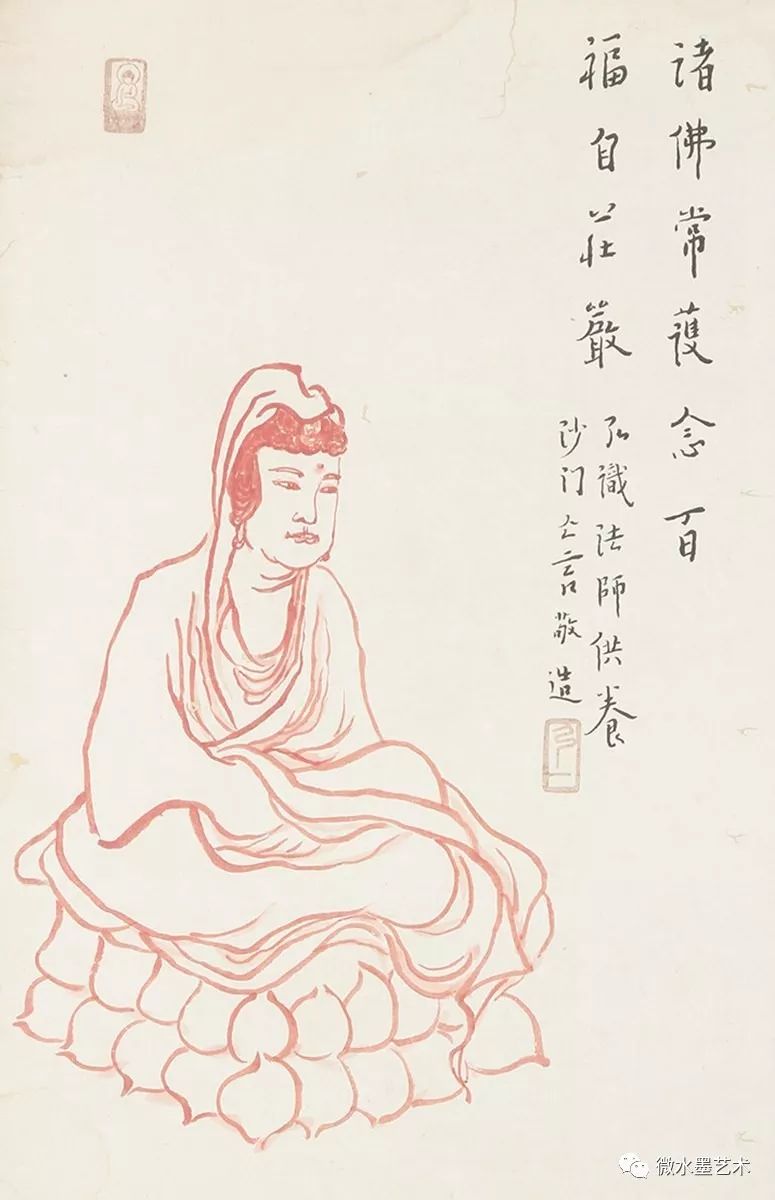 諸佛常護念百
福自莊嚴
弘識法師供養
沙门亾言敬造
弘一
微水墨艺术